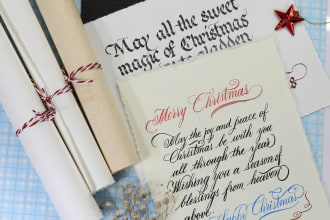 May all the sweet
magic of Christmas
to gladden
Merry Christmas
May the joy and peace of
Christmas be with you
all through the year
Wishing you a season
blessings from heaven
above
Happy Christmas